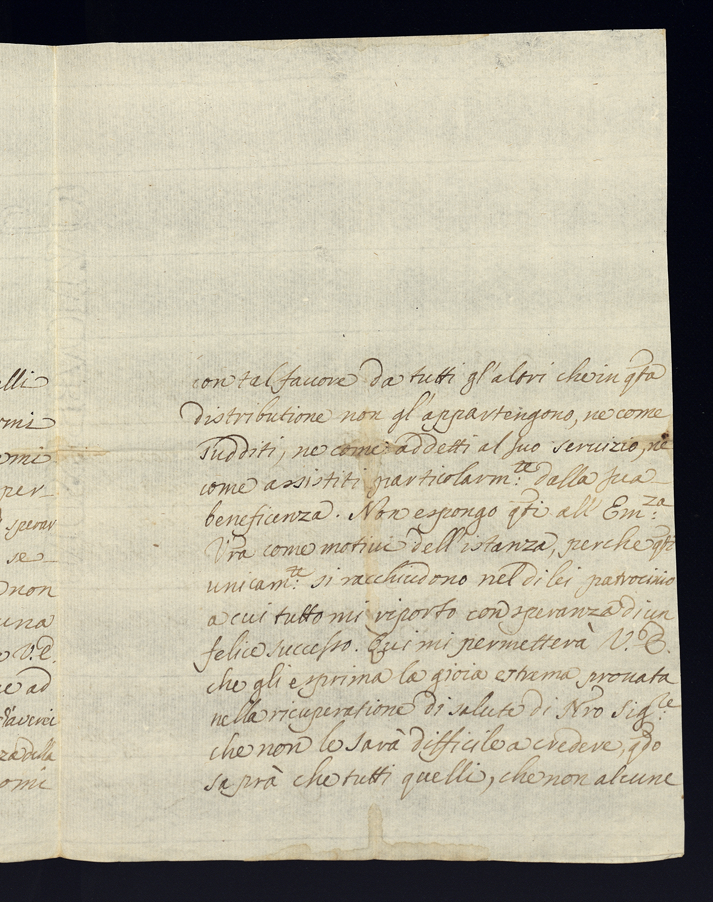 elli
rmi
emi
per
sperar
se
non
una
e V.E.
e ad
d'averci
za della
omi
con tal favore da tutti gl'altri che in qsta
distributione non gl'appartengono, ne come
Sudditi, ne come addetti al suo servizio, ne
come assistiti particolarmte: dalla sua
beneficenza. Non espongo qsti all'Emza:
Vra come motivi dell'istanza, perche qsti
unicamte: si racchiudono nel di lei patrocinio
a cui tutto mi riporto con speranza di un
felice successo. Qui mi permetterà V.E.
che gli esprima la gioia estrema provata
nella ricuperatione di salute di Nro Sigre:
che non le sarà difficile a credere, qdo
saprà che tutti quelli, che non alcune